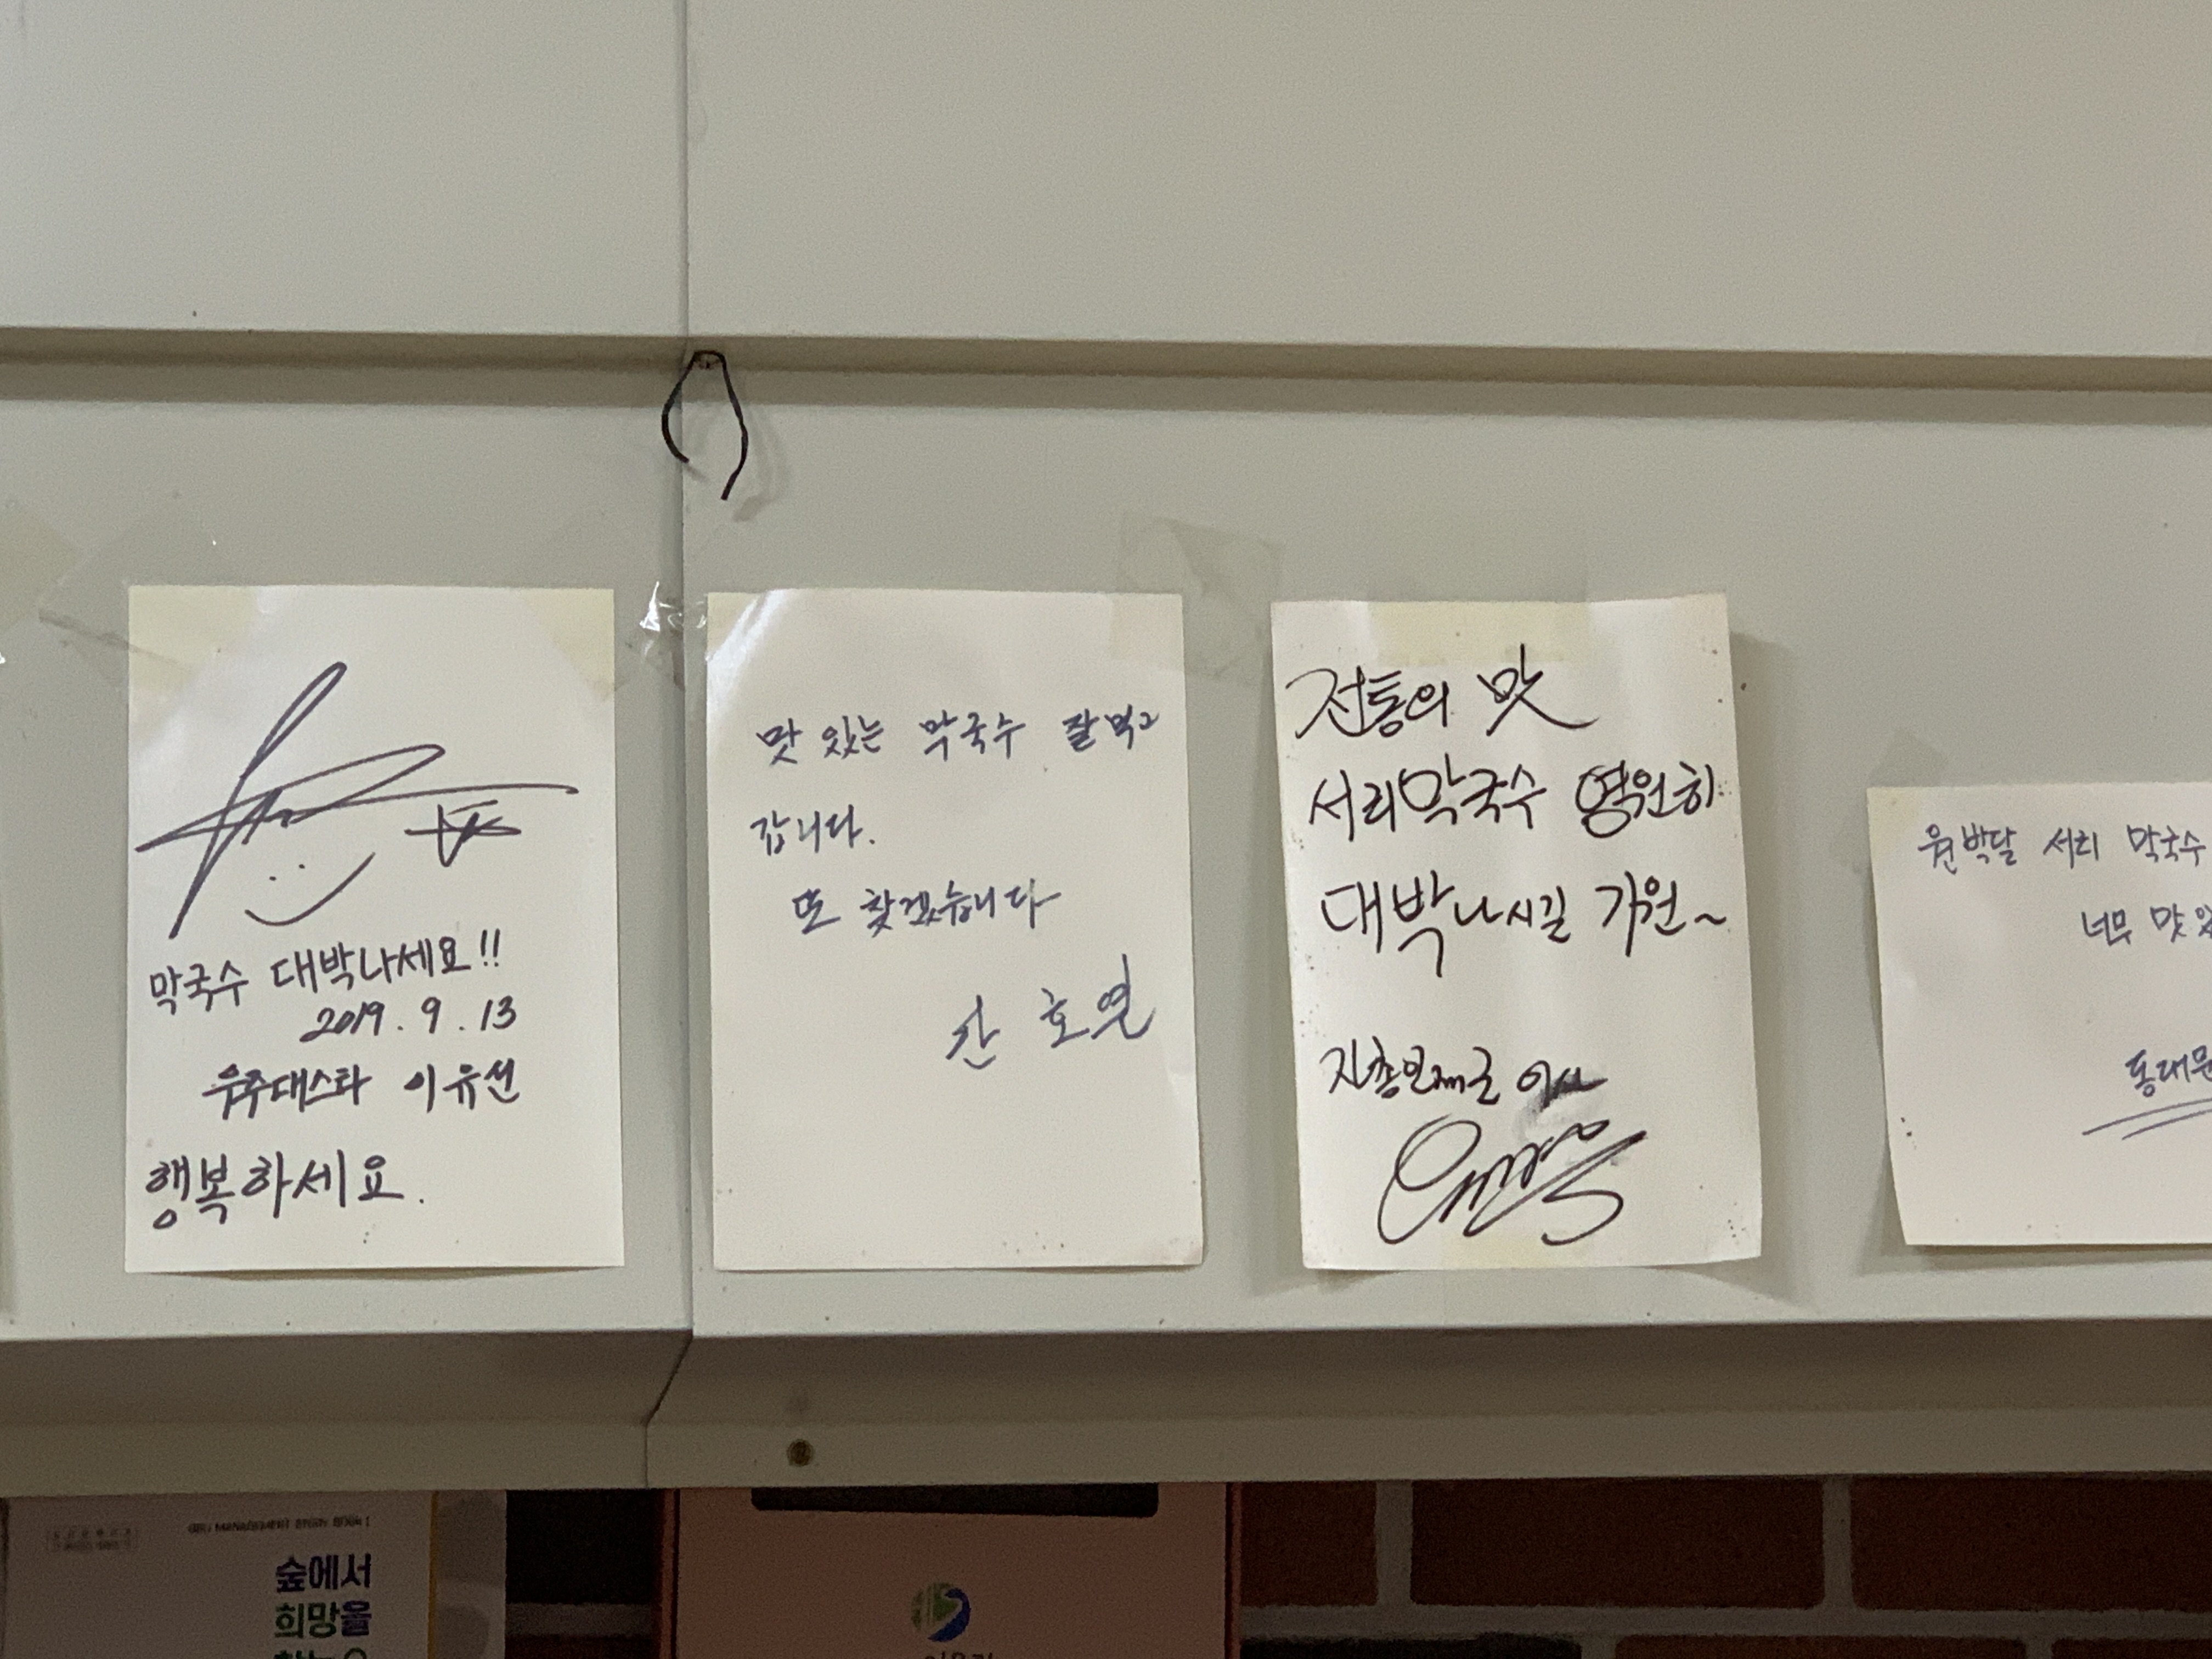 막국수 대박나세요!!
2019. 9. 13
우주대스타 이유선
행복하세요.
맛있는 막국수 잘먹고
갑니다.
또 찾겠습니다
간 호열
전통의 맛
서리막국수 영원히
대박나시길 기원~
원박달 서리 막국수
너무 맛있
동대문
숲에서
희망을